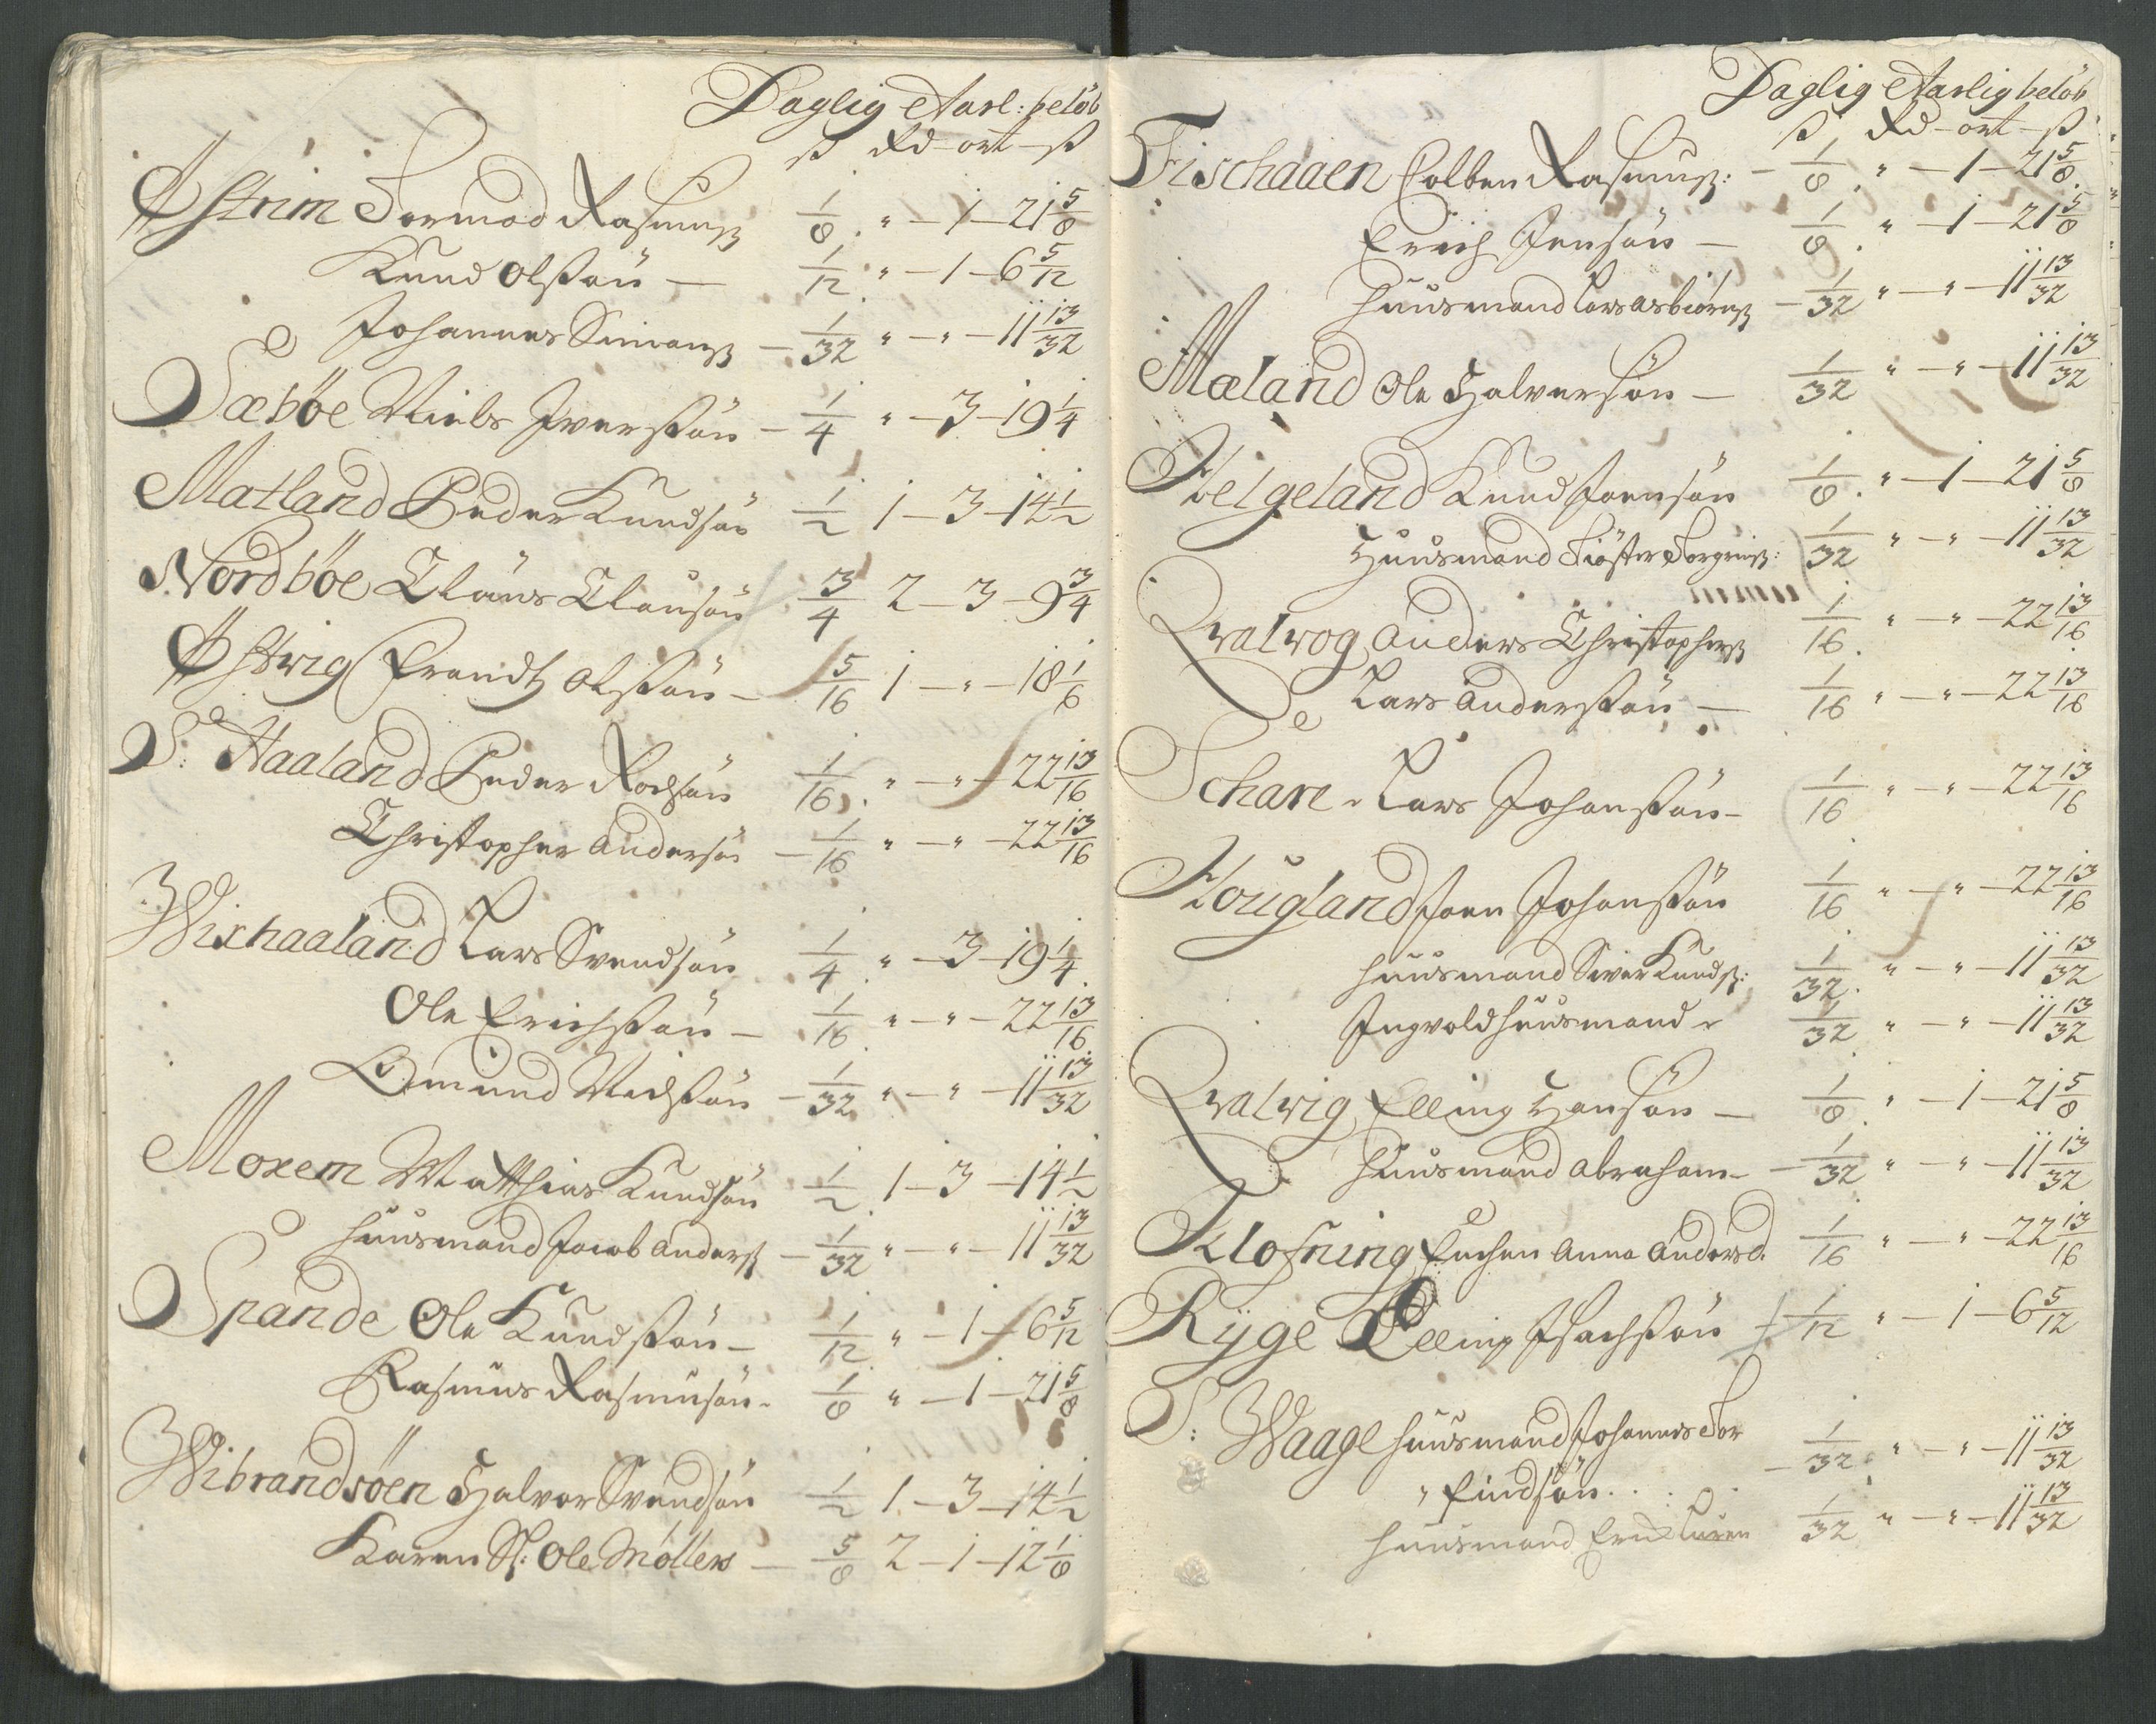 Daglig Aarl: belöb
ß Rd - ort - ß
Astrim Tormod Rasmusß 1/8 " - 1 - 21 5/8
Knud Olssön - 1/12 " - 1 - 6 5/12
Johannes Simonß - 1/32 " - " - 11 13/32
Sæbøe Niels Iverssön - 1/4 " - 3 - 19 1/4
Matland Peder Knudsön 1/2 1 - 3 - 14 1/2
Nordbøe Claus Clausön 3/4 2 - 3 - 9 3/4
Astvig Frandtz Olssön - 5/16 1 - " - 18 1/6
S: Haaland Peder 1/16 " - " - 22 13/16
Christopher Andersön - 1/16 " - " - 22 13/16
Wixhaaland Lars Svendsön 1/4 " - 3 - 19 1/4
Ole Erichssön - 1/16 " - " - 22 13/16
Omund - 1/32 " - " - 11 13/32
Moxem Matthias Knudsön 1/2 1 - 3 - 14 1/2
Huusmand Jacob Andersß - 1/32 " - " - 11 13/32
Spande Ole Knudssön - 1/12 " - 1 - 6 5/12
Rasmus Rasmusön - 1/8 " - 1 - 21 5/8
Wibrandsøen Halvor Svendsön 1/2 1 - 3 - 14 1/2
Karen Sl: Ole Møllers - 5/8 2 - 1 - 12 1/8
Daglig Aarlig belöb
ß Rd - ort - ß
Fischaaen Colben Rasmusß: - 1/8 " - 1 - 21 5/8
Erich Jensön - 1/8 " - 1 - 21 5/8
Huusmand Lars Asbiörnß - 1/32 " - " - 11 13/32
Mæland Ole Halversön - 1/32 " - " - 11 13/32
Helgeland Knud Joensön 1/8 " - 1 - 21 5/8
Huusmand Tiøster Torgrimß: 1/32 " - " - 11 13/32
Qvalvog Anders Christophersß 1/16 " - " - 22 13/16
Lars Anderssön - 1/16 " - " - 22 13/16
Schare Lars Johanssön - 1/16 " - " - 22 13/16
Hougland Joen Johanssön 1/16 " - " - 22 13/16
Huusmand Siver Knudß: 1/32 " - " - 11 13/32
Ingvold Huusmand 1/32 " - " - 11 13/32
Qvalvig Elling Hansön - 1/8 " - 1 - 21 5/8
Huusmand Abraham - 1/32 " - " - 11 13/32
Klofning Enchen Anna Andersd. 1/16 " - " - 22 13/16
Ryge Elling Isachssön 1/12 " - 1 - 6 5/12
S: Waage Huusmand Johannes Tor
" findsön - 1/32 " - " - 11 13/32
Huusmand Erik 1/32 " - " - 11 13/32